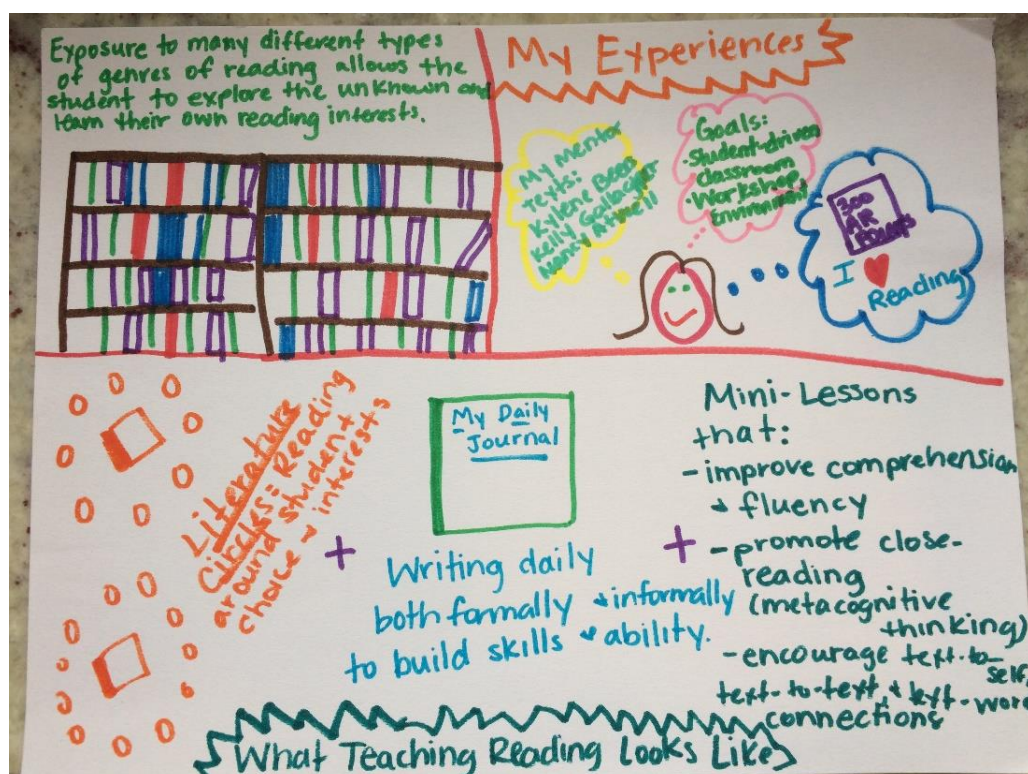 Exposure to many different types
of genres of reading allows the
student to explore the unknown and
learn their own reading interests.
My Experiences
My Mentor
Texts:
Kylene Beers
Kelly Gallagher
Nancy Atwell
Goals:
-Student-driven
classroom
-Workshop
Environment
300
AR
I ♥
Reading
Literature
Circles: Reading
around student
choice + interests
+
My Daily
Journal
Writing daily
both formally + informally
to build skills + ability.
+
Mini-Lessons
that:
-improve comprehension
+ fluency
-promote close-
reading
(metacognitive
thinking)
-encourage text-to-
self,
text-to-text, + text-
connections
What Teaching Reading Looks Like